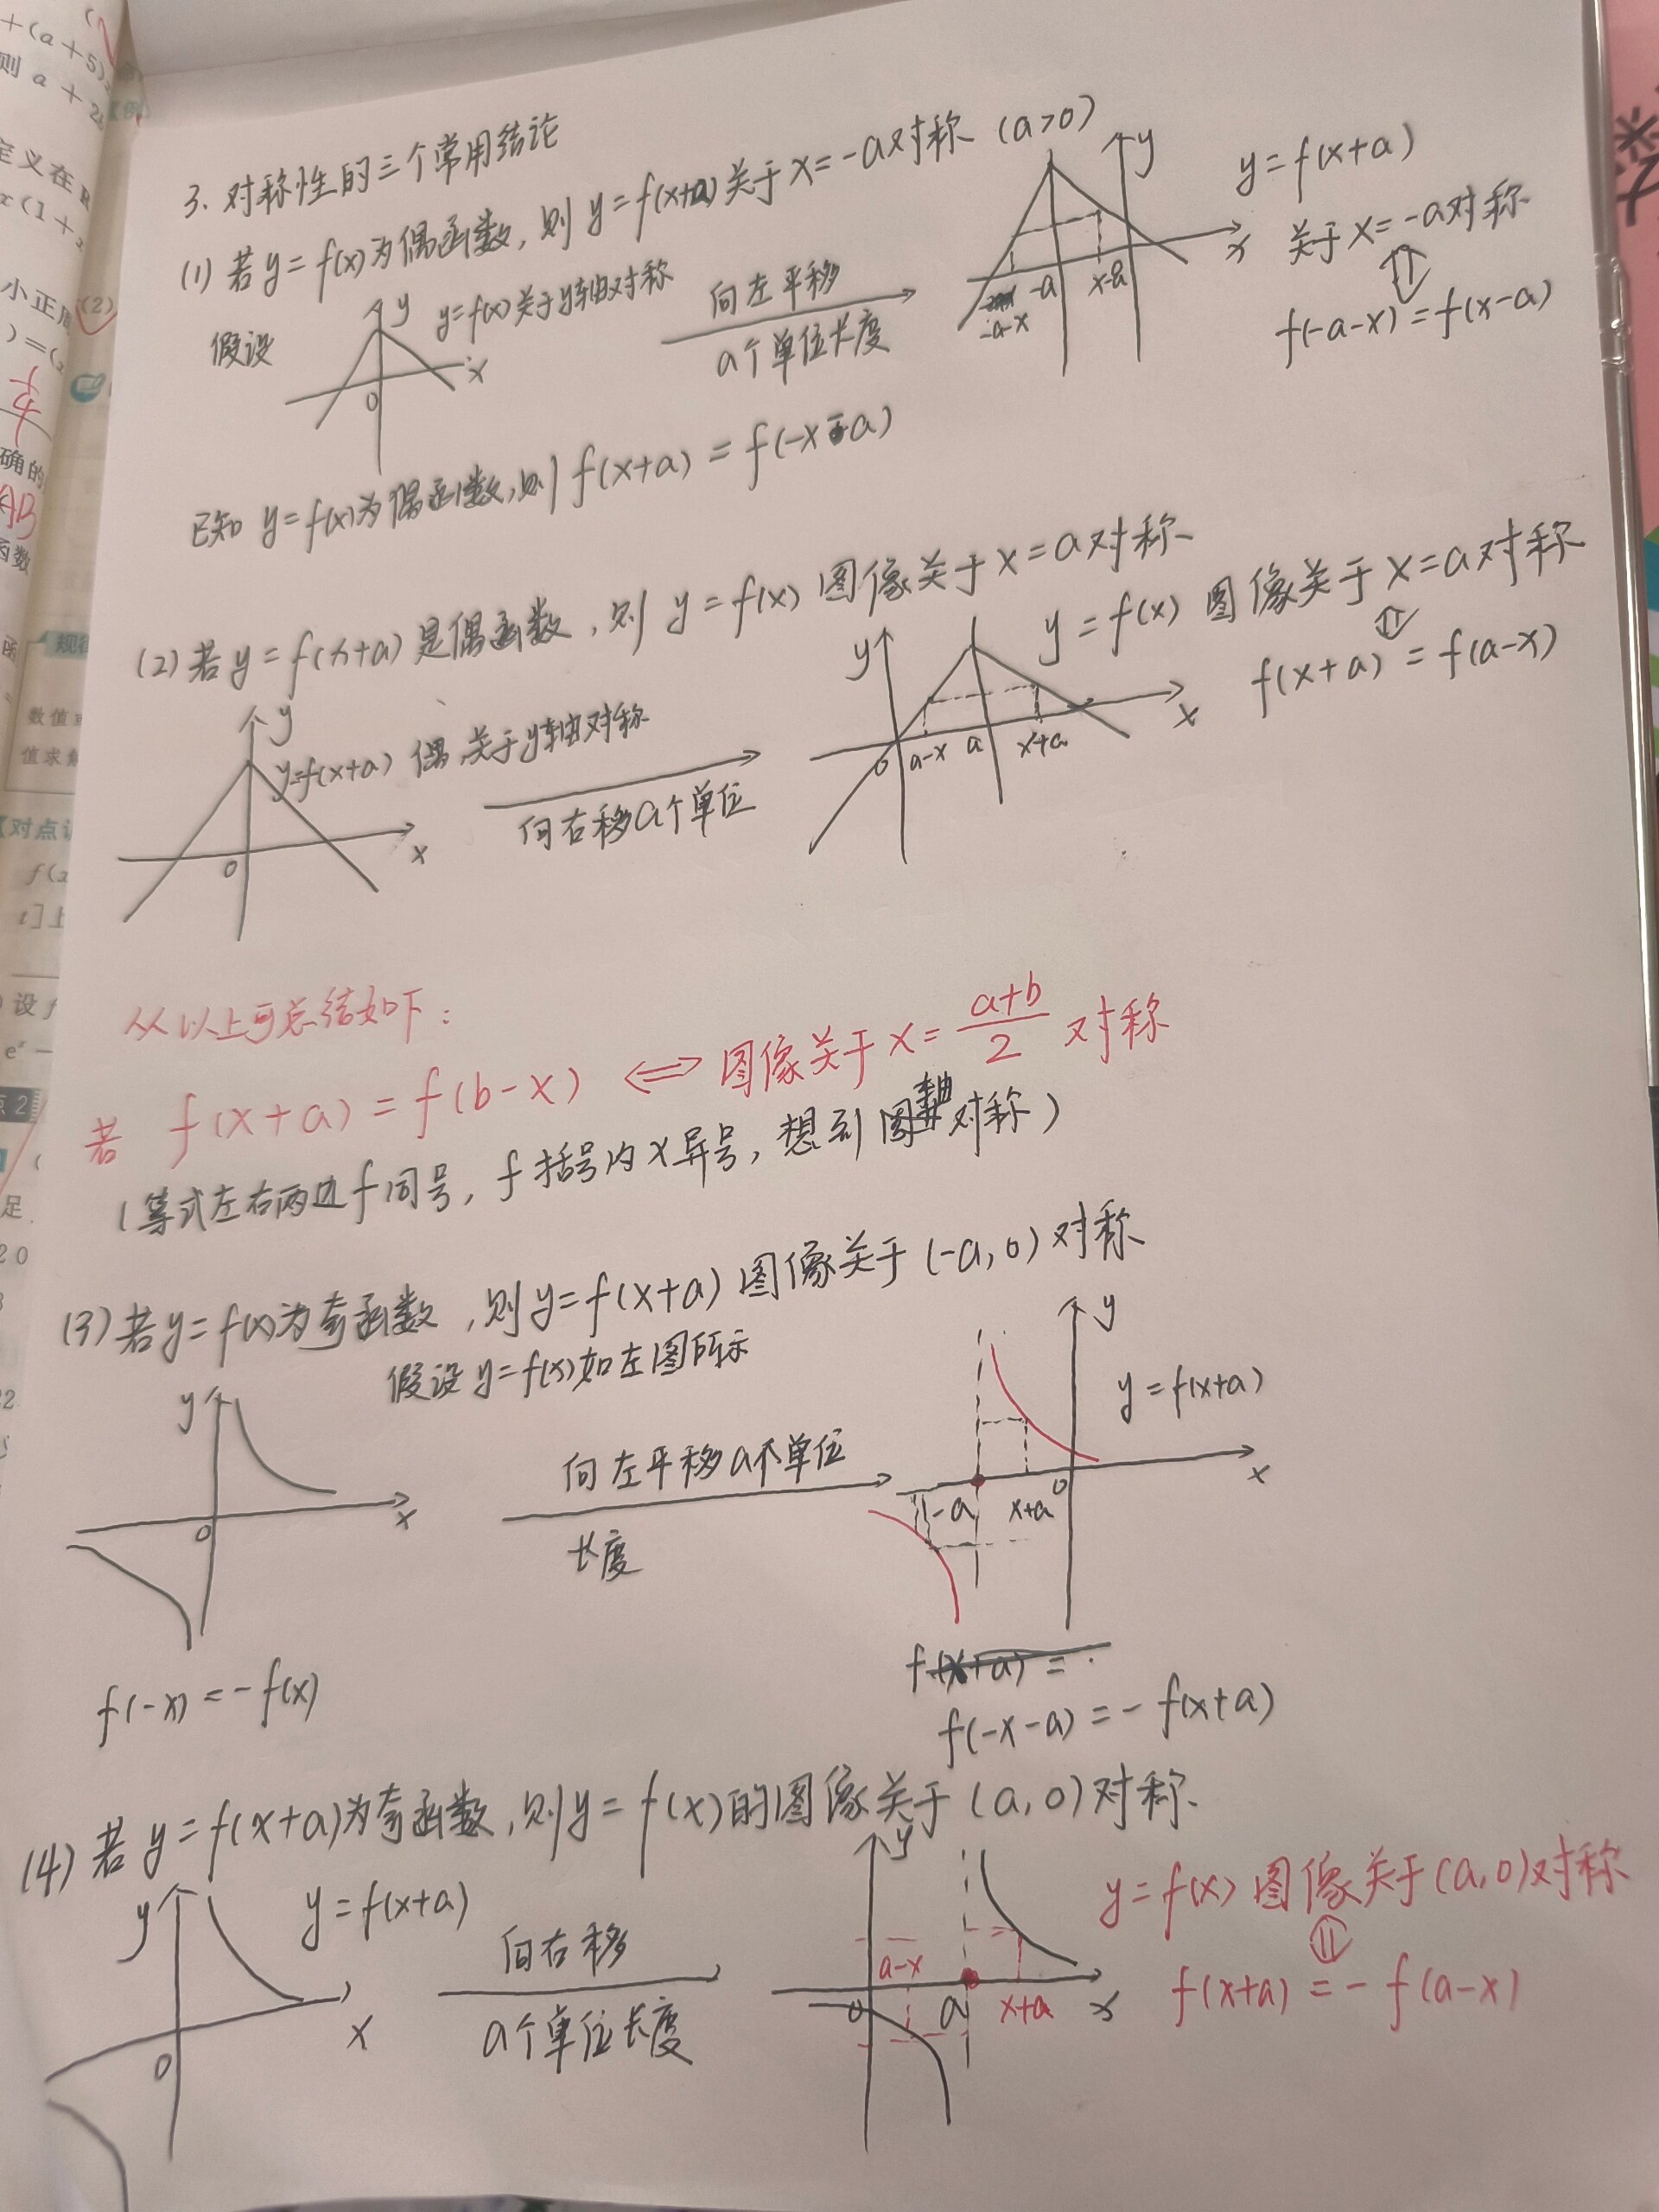 3. 对称性的三个常用结论
(1) 若 y=f(x)为偶函数, 则 y=f(x+a)关于 x=-a对称 (a>0)
假设
y
x
0
y=f(x)关于y轴对称
向左平移
a个单位长度
y
x
-a-x
-a
x-a
y=f(x+a)
关于 x=-a对称
⇕
f(-a-x)=f(x-a)
已知 y=f(x)为偶函数,则 f(x+a)=f(-x-a)
(2) 若 y=f(x+a)是偶函数, 则 y=f(x) 图像关于 x=a对称
y
x
0
y=f(x+a) 偶,关于y轴对称
向右移a个单位
y
x
0
a-x
a
x+a
y=f(x) 图像关于 x=a对称
⇕
f(x+a)=f(a-x)
从以上可总结如下:
若 f(x+a)=f(b-x) ⇔ 图像关于 x=\frac{a+b}{2} 对称
(等式左右两边f同号, f括号内x异号, 想到轴对称)
(3) 若y=f(x)为奇函数, 则y=f(x+a)图像关于(-a,0)对称
假设y=f(x)如左图所示
y
x
0
向左平移a个单位
长度
y
x
0
-a
x+a
y=f(x+a)
f(-x)=-f(x)
f(x+a)=
f(-x-a)=-f(x+a)
(4) 若 y=f(x+a)为奇函数,则y=f(x)的图像关于(a,0)对称.
y
x
0
y=f(x+a)
向右移
a个单位长度
y
x
0
a-x
a
x+a
y=f(x) 图像关于(a,0)对称
⇕
f(x+a)=-f(a-x)
+(a+5)
则 a+2
定义在R
x(1+
小正周
(2)
确的
AB
函数
规律
数值
值求解
【对点训
f(x
t]上
设f
点2
足
20